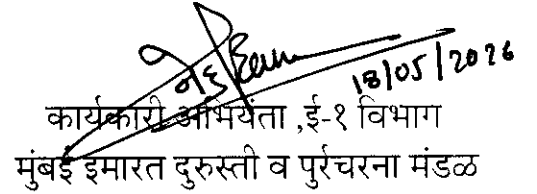 18/05/2026
कार्यकारी अभियंता ,ई-१ विभाग
मुंबई इमारत दुरुस्ती व पुर्रचरना मंडळ